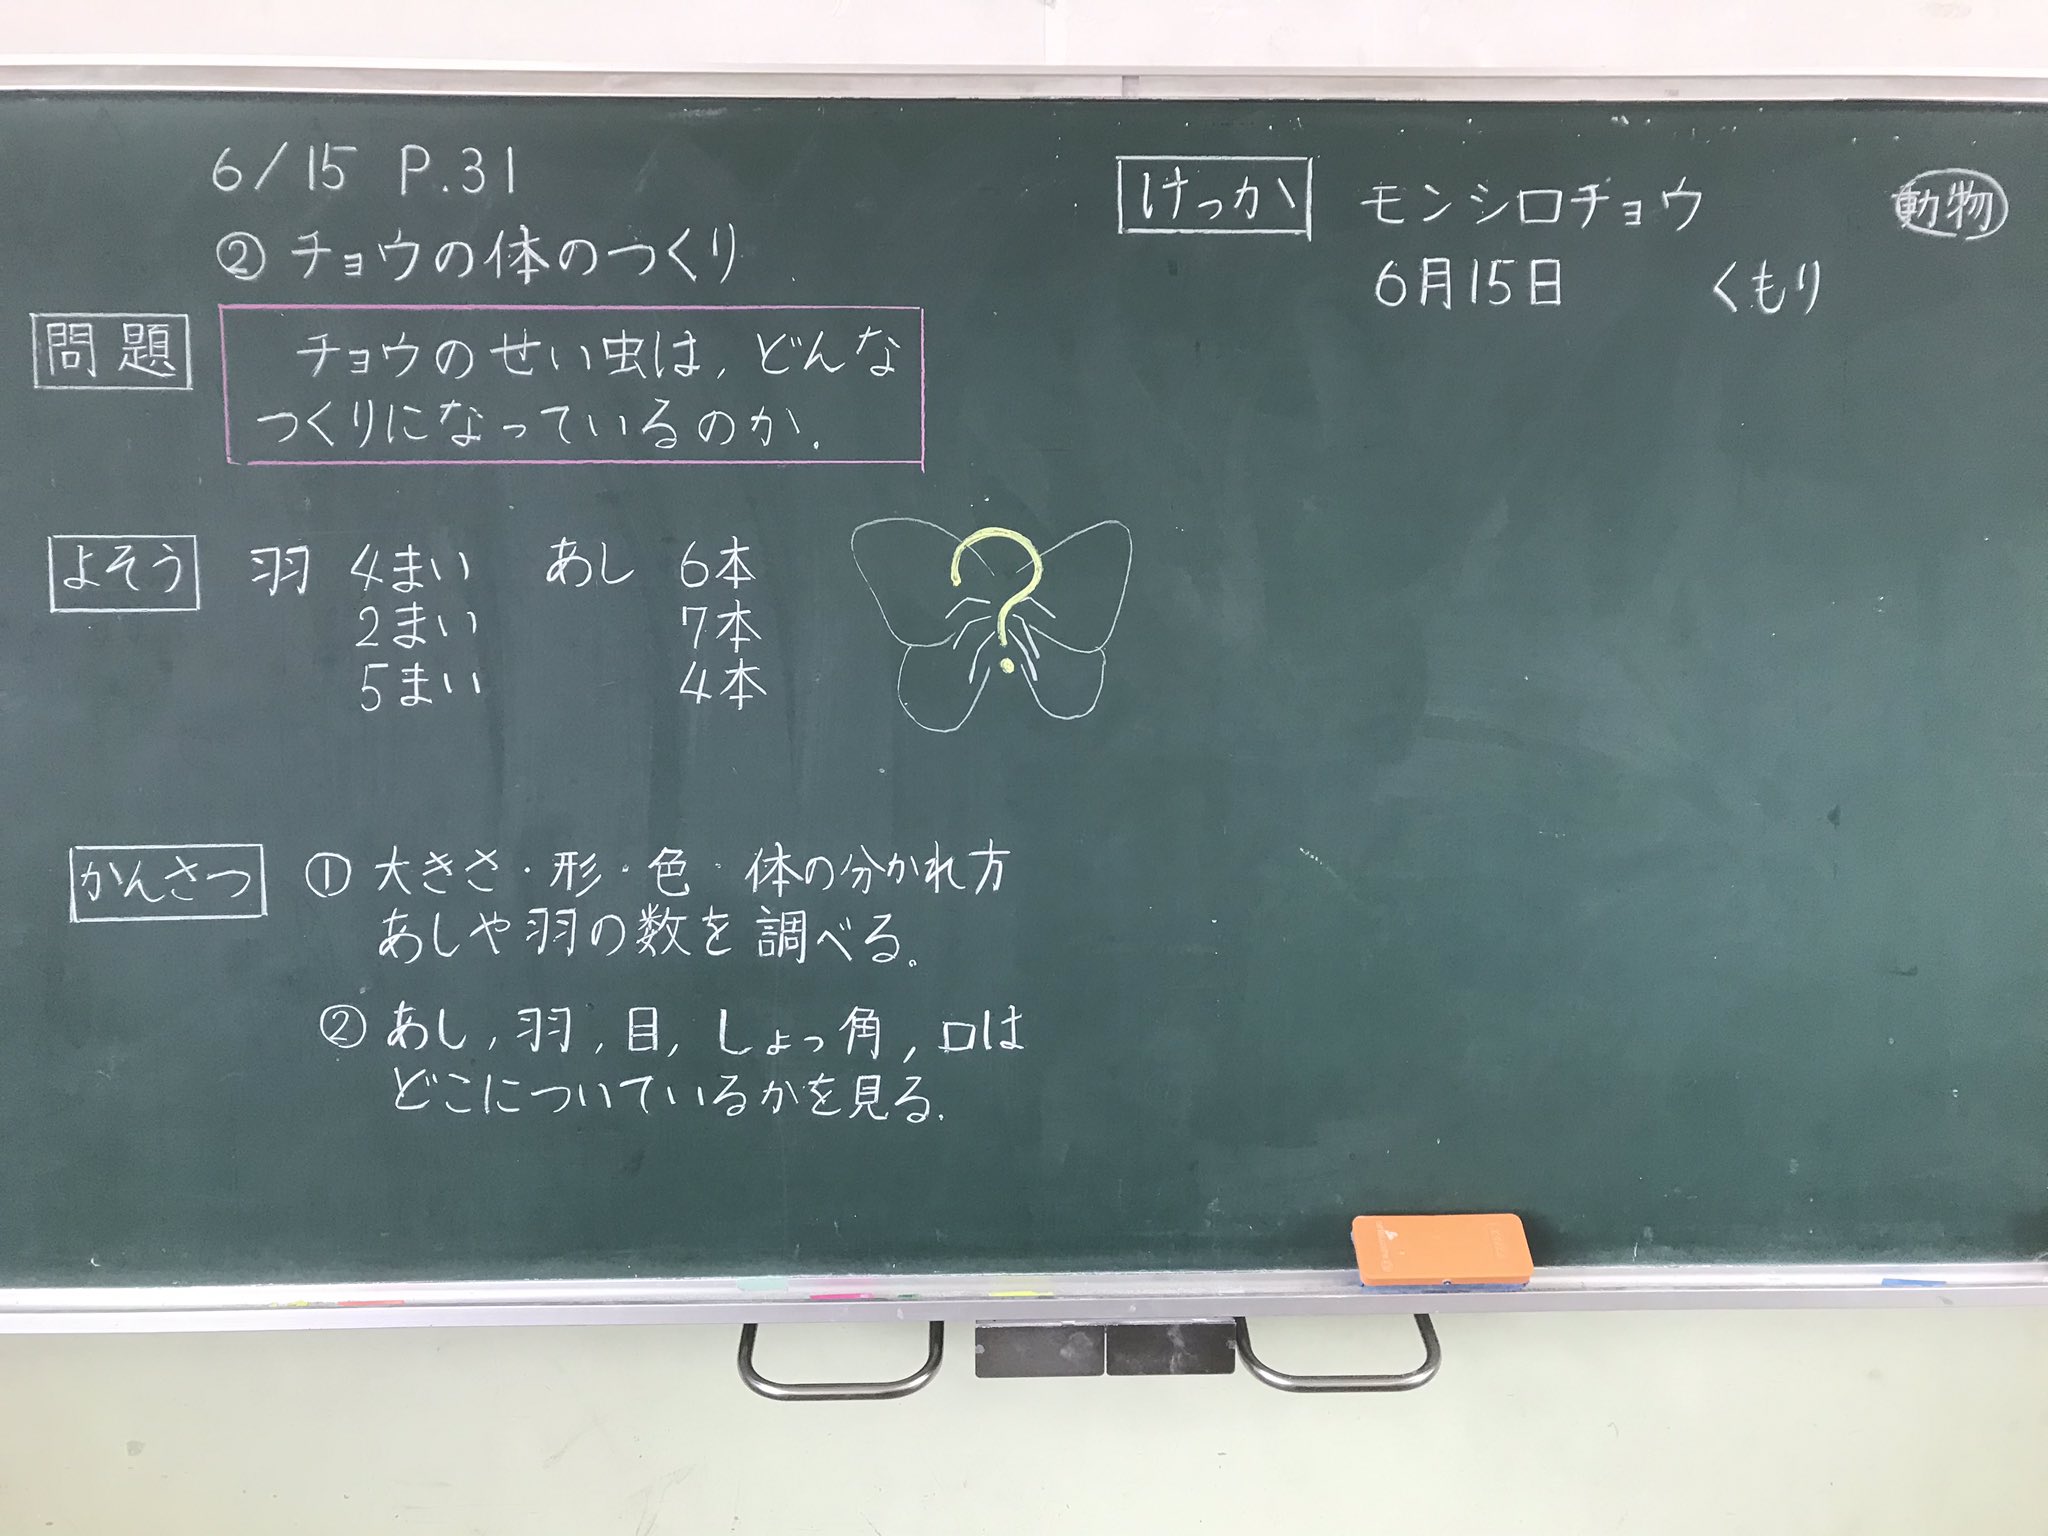 6/15 P.31
② チョウの体のつくり
問題
チョウのせい虫は，どんな
つくりになっているのか．
よそう 羽 4まい あし 6本
2まい 7本
5まい 4本
?
かんさつ ① 大きさ・形・色・体の分かれ方
あしや羽の数を調べる。
② あし，羽，目，しょっ角，口は
どこについているかを見る．
けっか モンシロチョウ 動物
6月15日 くもり